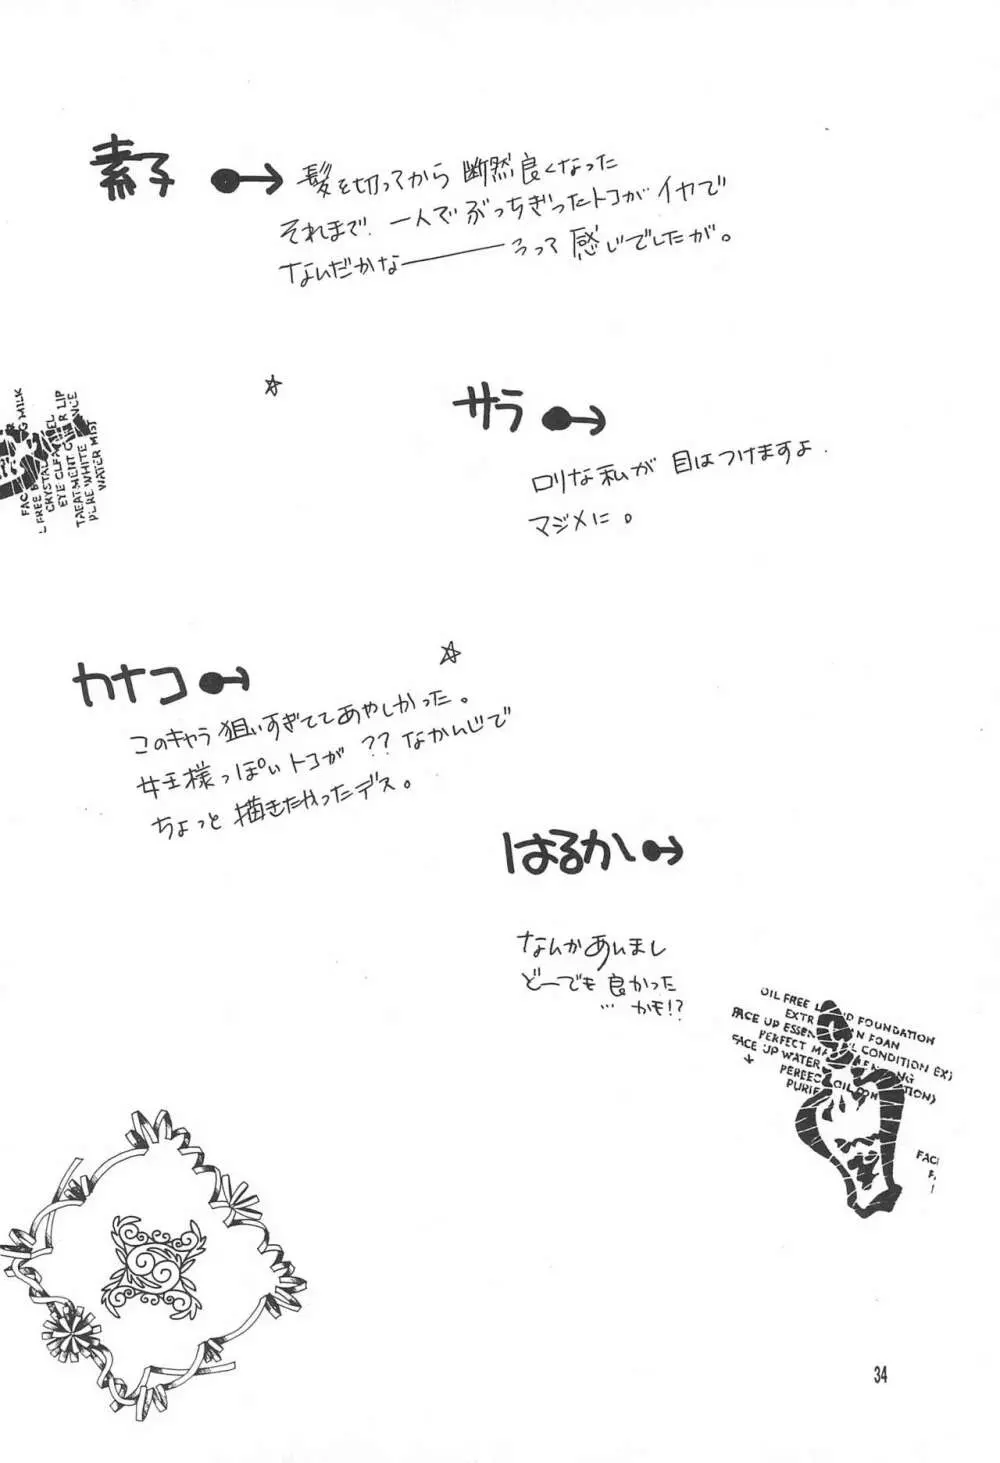 素子
髪を切ってから 断然良くなった
それまで、一人で ぶっちぎったトコがイヤで
なんだかな――――うって 感じでしたが。
サラ
ロリな私が 目はつけますよ.
マジメに。
カナコ
このキャラ 狙いすぎててあやしかった。
女王様っぽいトコが ??なかんじで
ちょっと 描きたかったデス。
はるか
なんかあいまし
どーでも良かった
… かも!?
G MILK
FAC
L FREE
CRYSTAL
EYE CLEA
TREATMENT
PURE WHITE
WATER MIST
OIL FREE L ID FOUNDATION
EXTR N FOAN
FACE UP ESSEN L CONDITION EX)
PERFECT MA NG
FACE UP WATER TION)
PERFEC OIL
PURIF
FACI
34